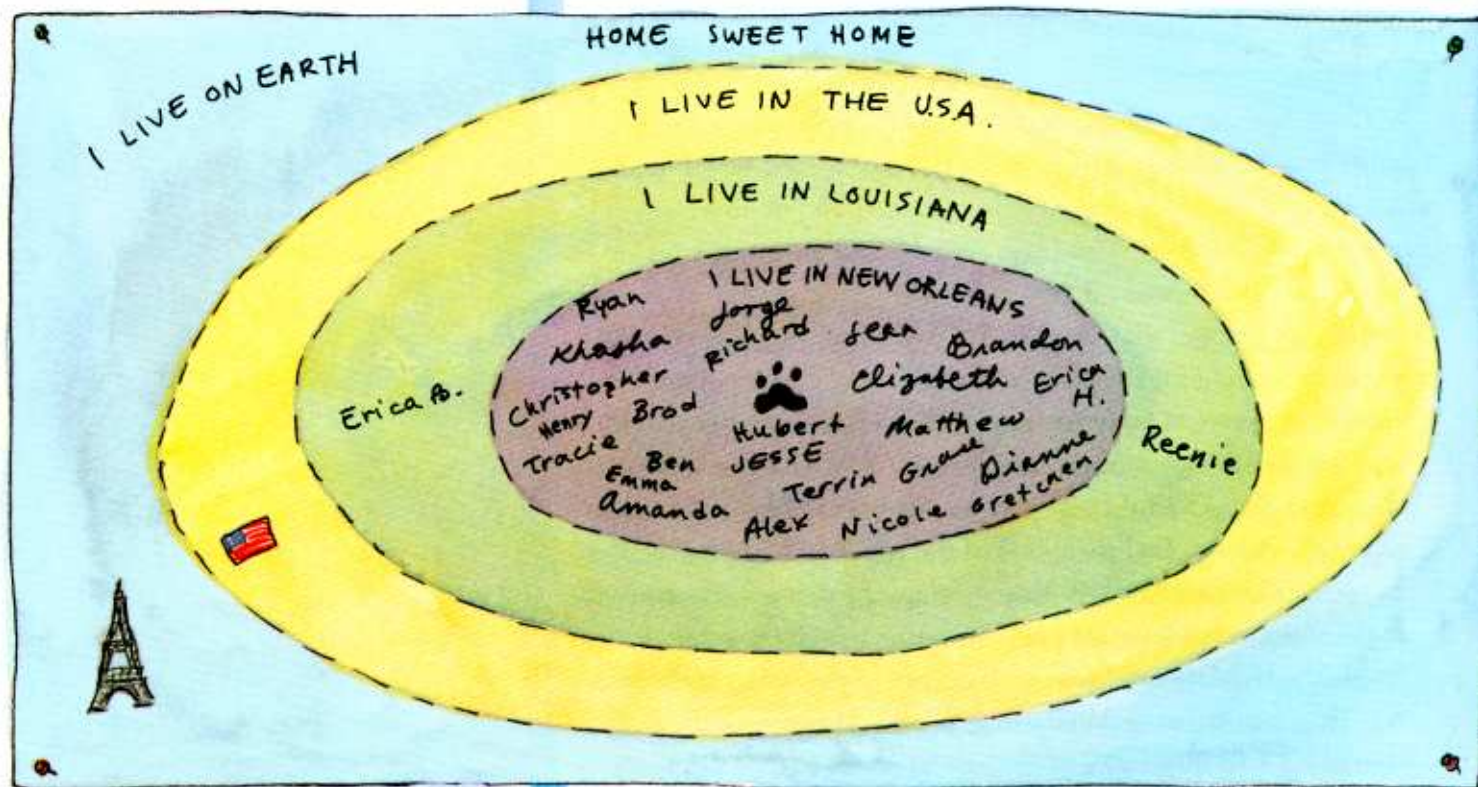 HOME SWEET HOME
I LIVE ON EARTH
I LIVE IN THE U.S.A.
I LIVE IN LOUISIANA
I LIVE IN NEW ORLEANS
Ryan
Jorge
Khasha Richard Jean Brandon
Christopher Elizabeth Erica H.
Erica B.
Henry Brod
Hubert Matthew
Tracie Ben JESSE
Reenie
Emma Terrin Grace Dianne
Amanda
Alex Nicole Gretchen